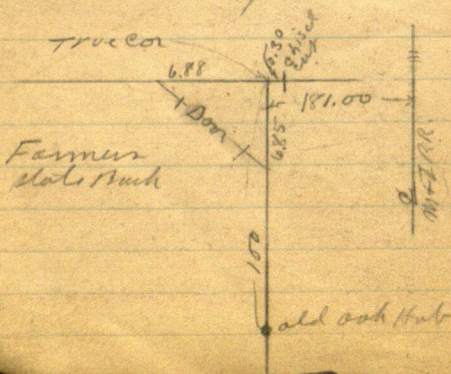 True Cor
0.30
Chisel
Cut
6.88
181.00
Door
6.85
Farmers
State Bank
M & I R.R.
100
old oak Hub